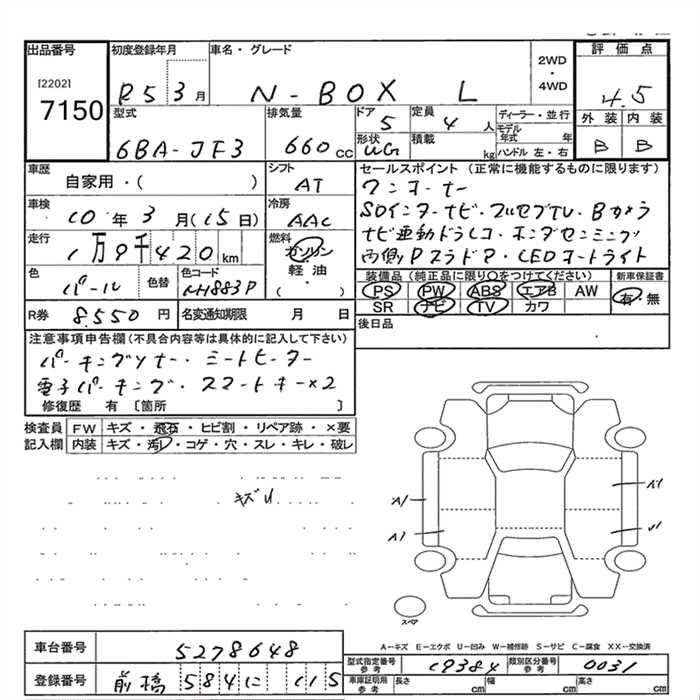 出品番号 初度登録年月 車名・グレード 評価点
[2202] 2WD
7150 R5 3月 N-BOX L ・ 4WD 4.5
型式 排気量 ドア 定員 ディーラー・並行 外装 内装
6BA-JF3 660cc 5 4人 モデル年式 年 B B
形状 積載 kg ハンドル 左・右
車歴 シフト セールスポイント (正常に機能するものに限ります)
自家用・( ) AT ワンオーナー
車検 冷房 SDインターナビ・フルセグTV・Bカメラ
10年3月(15日) AAC ナビ連動ドラレコ・ホンダセンシング
走行 燃料 両側Pスラドア・LEDオートライト
1万9千420km ガソリン
色 色替 色コード 軽油 装備品(純正品に限り○をつけてください) 新車保証書
パール NH883P ( ) PS PW ABS エアB AW 有・無
SR ナビ TV カワ
R券 8550円 名変通知期限 月 日 後日品
注意事項申告欄(不具合内容等は具体的に記入して下さい)
パーキングソナー・シートヒーター
電子パーキング・スマートキー×2
修復歴 有 〔箇所 〕
検査員 FW キズ・飛石・ヒビ割・リペア跡・×要
記入欄 内装 キズ・汚レ・コゲ・穴・スレ・キレ・破レ
キズU
A1 A1
A1 U1
スペア
A-キズ E-エクボ U-凹み W-補修跡 S-サビ C-腐食 XX-交換済
車台番号 5278648
型式指定番号参考 19384 類別区分番号参考 0031
登録番号 前橋 584 に 115
車庫証明用参考 長さ cm 幅 cm 高さ cm